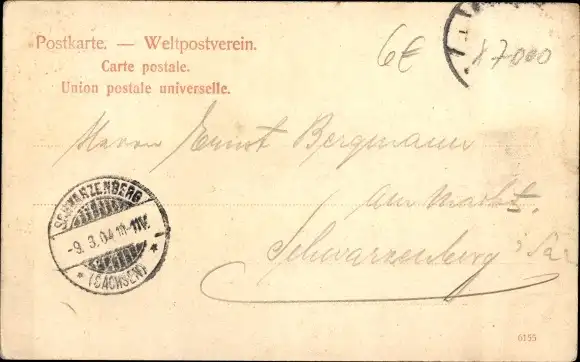 Postkarte. — Weltpostverein.
Carte postale.
Union postale universelle.
6€
X7000
Herrn Ernst Bergmann
am Markt.
Schwarzenberg
SCHWARZENBERG
-9.3.04.10-11V.
* (SACHSEN) *
6155